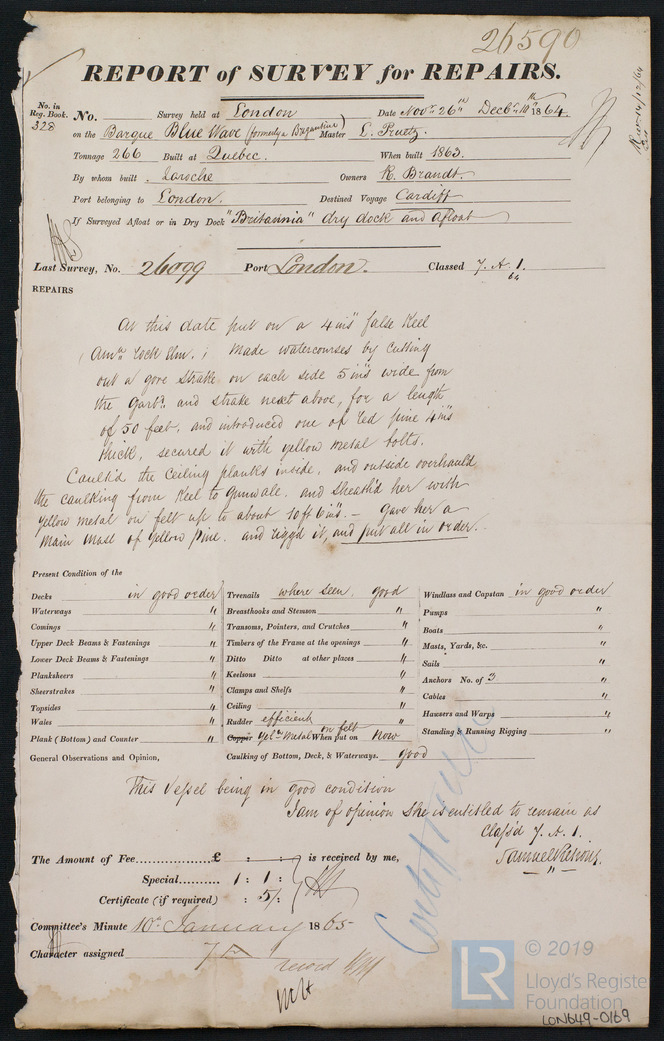 26590
REPORT of SURVEY for REPAIRS.
No. in Reg. Book. 328
No. Survey held at London Date Novr 26th Decbr 10th 1864.
on the Barque Blue Wave (formerly a Brigantine) Master L. Pruetz.
Tonnage 266 Built at Quebec. When built 1863.
By whom built Laroche Owners R. Brandt.
Port belonging to London. Destined Voyage Cardiff
If Surveyed Afloat or in Dry Dock "Britannia" dry dock and afloat
Last Survey, No. 26099 Port London. Classed 7. A. 1.
64
REPAIRS
At this date put on a 4 ins false Keel
Amn. Rock Elm. ; Made watercourses by cutting
out a gore strake on each side 5 ins wide from
the Garbd. and strake next above, for a length
of 50 feet, and introduced one of Red pine 4 ins
thick, secured it with yellow metal bolts.
Caulk'd the Ceiling planks inside, and outside overhauld
the caulking from Keel to Gunwale. and Sheath'd her with
yellow metal on felt up to about 10 ft 6 ins. — Gave her a
Main Mast of Yellow Pine. and rigg'd it, and put all in order.
Present Condition of the
Decks in good order
Waterways "
Comings "
Upper Deck Beams & Fastenings "
Lower Deck Beams & Fastenings "
Planksheers "
Sheerstrakes "
Topsides "
Wales "
Plank (Bottom) and Counter "
General Observations and Opinion,
Treenails where seen. good
Breasthooks and Stemson "
Transoms, Pointers, and Crutches "
Timbers of the Frame at the openings "
Ditto Ditto at other places "
Keelsons "
Clamps and Shelfs "
Ceiling "
Rudder efficient
Copper Yelw Metal on felt When put on Now
Caulking of Bottom, Deck, & Waterways. good
Windlass and Capstan in good order
Pumps "
Boats "
Masts, Yards, &c. "
Sails "
Anchors No. of 3 "
Cables "
Hausers and Warps "
Standing & Running Rigging "
This Vessel being in good condition
I am of opinion She is entitled to remain as
Class'd 7. A. 1.
The Amount of Fee £ : : is received by me,
Special 1 : 1 :
Certificate (if required) : 5/:
Committee's Minute 10th January 1865
Character assigned 7 A
record
Certificate
© 2019
LR
Lloyd's Register
Foundation
LON649-0169